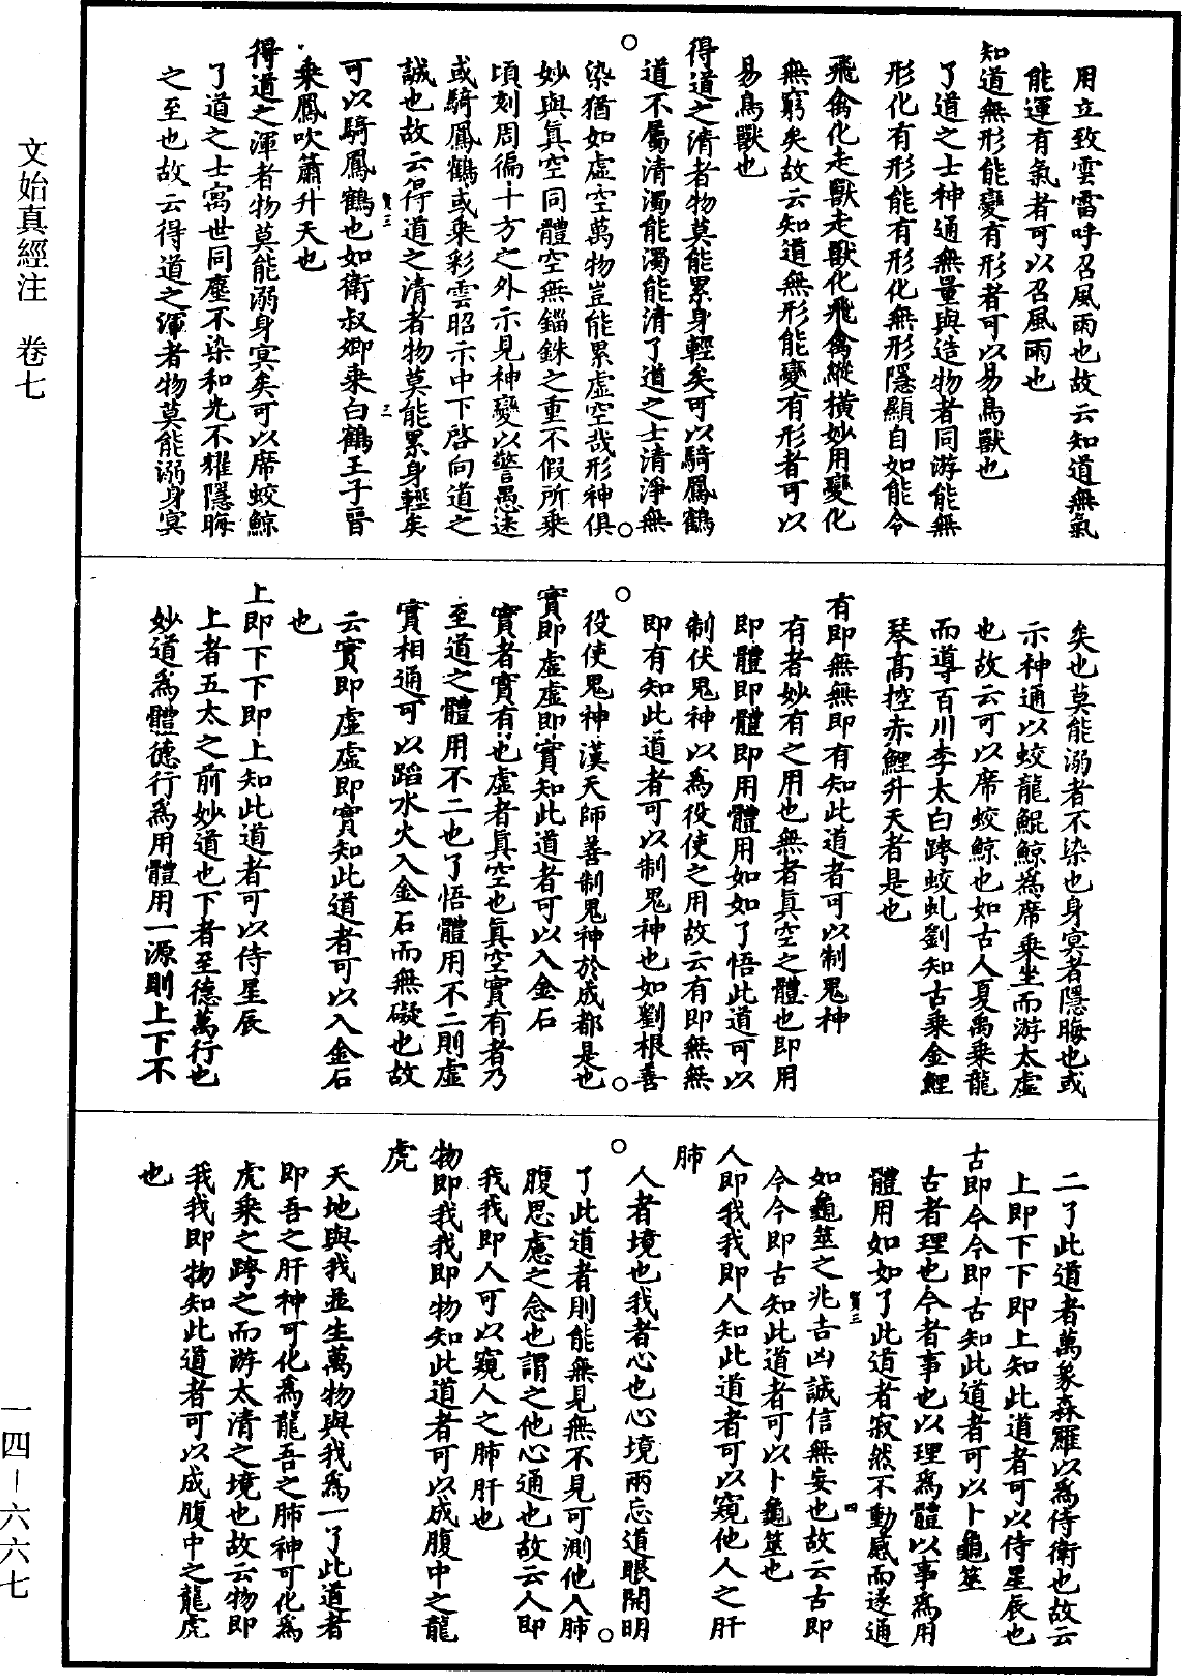 用立致雲雷呼召風雨也故云知道無氣
能運有氣者可以召風雨也
知道無形能變有形者可以易鳥獸也
了道之士神通無量與造物者同游能無
形化有形能有形化無形隱顯自如能令
飛禽化走獸走獸化飛禽縱橫妙用變化
無窮矣故云知道無形能變有形者可以
易鳥獸也
得道之清者物莫能累身輕矣可以騎鳳鶴
道不屬清濁能濁能清了道之士清淨無
染猶如虛空萬物豈能累虛空哉形神俱
妙與真空同體空無錙銖之重不假所乘
頃刻周徧十方之外示見神變以警愚迷
或騎鳳鶴或乘彩雲昭示中下啓向道之
誠也故云得道之清者物莫能累身輕矣
可以騎鳳鶴也如衛叔卿乘白鶴王子晉
乘鳳吹簫升天也
得道之渾者物莫能溺身冥矣可以席蛟鯨
了道之士寓世同塵不染和光不耀隱晦
之至也故云得道之渾者物莫能溺身冥
矣也莫能溺者不染也身冥者隱晦也或
示神通以蛟龍鯤鯨為席乘坐而游太虛
也故云可以席蛟鯨也如古人夏禹乘龍
而導百川李太白跨蛟虬劉知古乘金鯉
琴高控赤鯉升天者是也
有即無無即有知此道者可以制鬼神
有者妙有之用也無者真空之體也即用
即體即體即用體用如如了悟此道可以
制伏鬼神以為役使之用故云有即無無
即有知此道者可以制鬼神也如劉根善
役使鬼神漢天師善制鬼神於成都是也
實即虛虛即實知此道者可以入金石
實者實有也虛者真空也真空實有者乃
至道之體用不二也了悟體用不二則虛
實相通可以蹈水火入金石而無礙也故
云實即虛虛即實知此道者可以入金石
也
上即下下即上知此道者可以侍星辰
上者五太之前妙道也下者至德萬行也
妙道為體德行為用體用一源則上下不
二了此道者萬象森羅以為侍衛也故云
上即下下即上知此道者可以侍星辰也
古即今今即古知此道者可以卜龜筮
古者理也今者事也以理為體以事為用
體用如如了此道者寂然不動感而遂通
如龜筮之兆吉凶誠信無妄也故云古即
今今即古知此道者可以卜龜筮也
人即我我即人知此道者可以窺他人之肝
肺
人者境也我者心也心境兩忘道眼開明
了此道者則能無見無不見可測他人肺
腹思慮之念也謂之他心通也故云人即
我我即人可以窺人之肺肝也
物即我我即物知此道者可以成腹中之龍
虎
天地與我並生萬物與我為一了此道者
即吾之肝神可化為龍吾之肺神可化為
虎乘之跨之而游太清之境也故云物即
我我即物知此道者可以成腹中之龍虎
也
文始真經注　卷七
一四－六六七